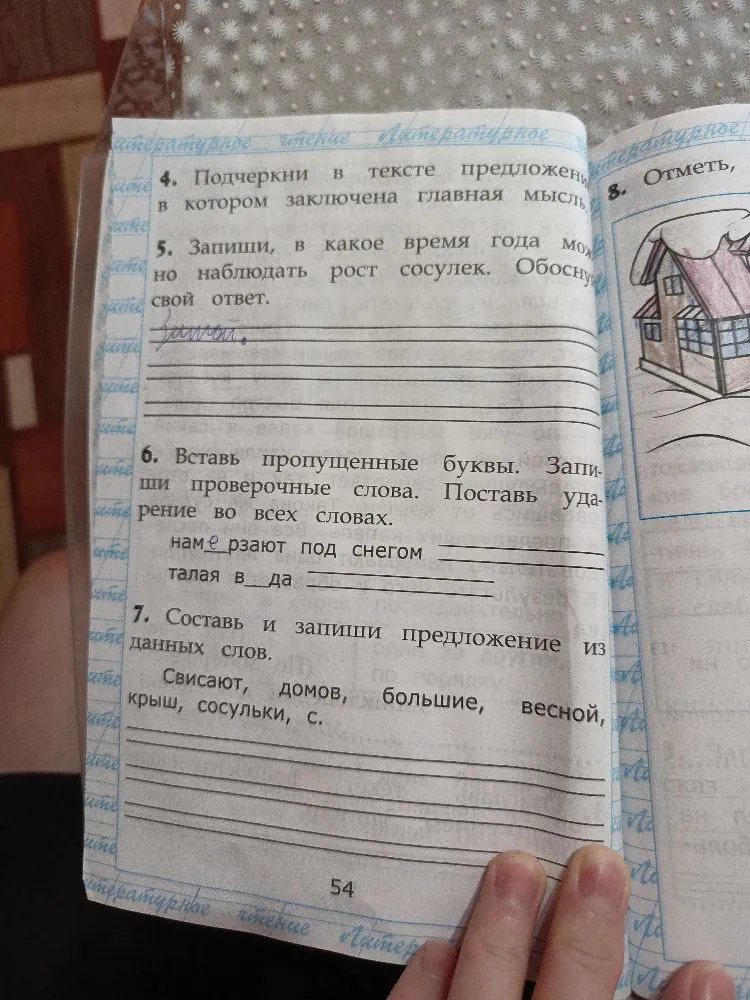 итературное чтение Литературное
4. Подчеркни в тексте предложени
в котором заключена главная мысль
5. Запиши, в какое время года мож
но наблюдать рост сосулек. Обосну
свой ответ.
Зимой.
6. Вставь пропущенные буквы. Запи-
ши проверочные слова. Поставь уда-
рение во всех словах.
нам е рзают под снегом
талая в__да
7. Составь и запиши предложение из
данных слов.
Свисают, домов, большие, весной,
крыш, сосульки, с.
54
итературное чтение Литерату
итературное
8. Отметь,